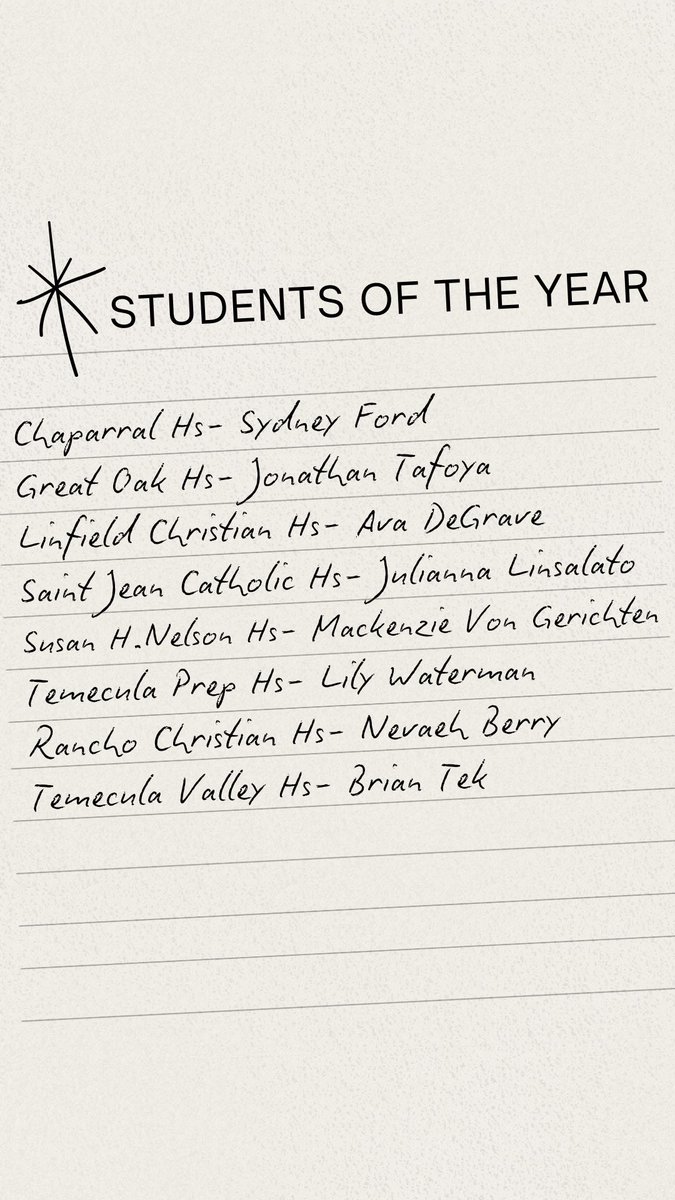 STUDENTS OF THE YEAR
Chaparral Hs- Sydney Ford
Great Oak Hs- Jonathan Tafoya
Linfield Christian Hs- Ava DeGrave
Saint Jean Catholic Hs- Julianna Linsalato
Susan H.Nelson Hs- Mackenzie Von Gerichten
Temecula Prep Hs- Lily Waterman
Rancho Christian Hs- Nevaeh Berry
Temecula Valley Hs- Brian Tek